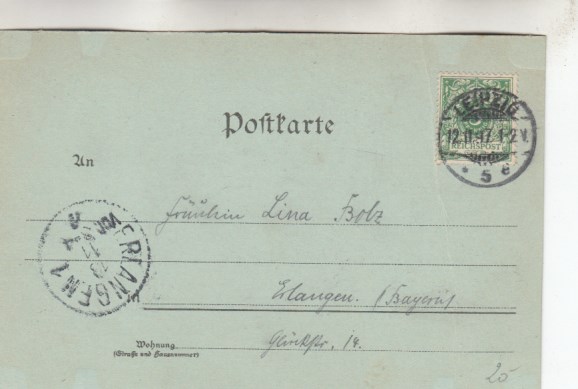 Postkarte
LEIPZIG
12.11.97.1-2V.
* 5 e
REICHSPOST
An
Fräulein Lina Bolz
ERLANGEN 1
13
Erlangen. (Bayern)
Wohnung
(Straße und Hausnummer)
Glückstr. 14.
25